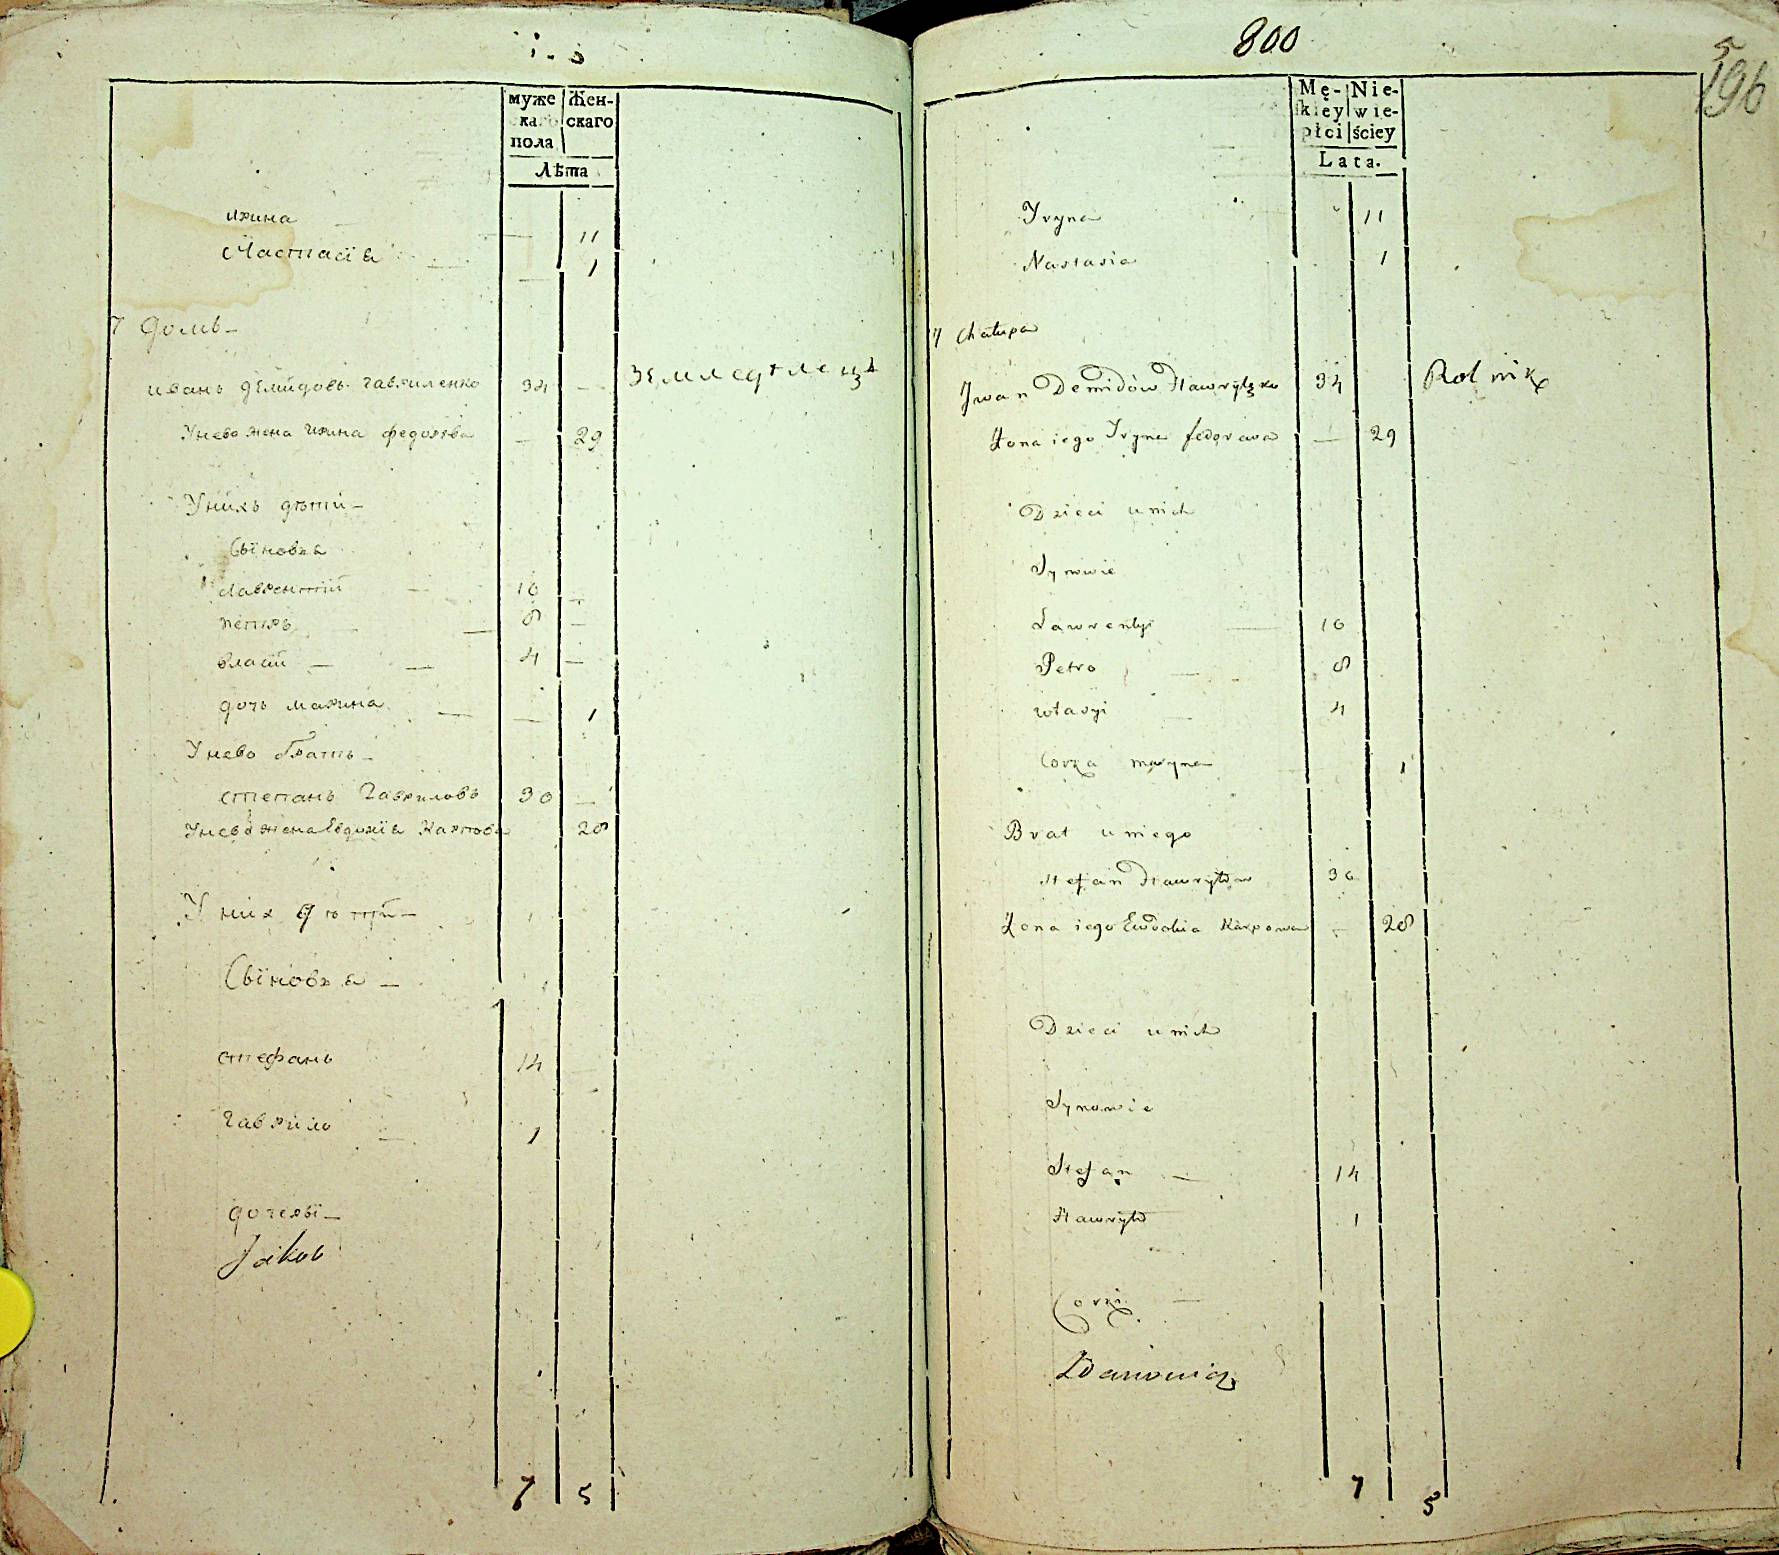 муже
скаго
пола
Жен-
скаго
Лѣта
ирина 11
Настасіа 1
7 домъ
иванъ демидовъ гавриленко 34 земледѣлецъ
Унево жена ирина федорова 29
Унихъ дѣти
Сыновя
Лаврентій 10
петръ 8
власій 4
дочь марина 1
Унево братъ
степанъ Гавриловъ 30
Унево жена Евдокіа Карпова 28
У них дѣти
Сыновя
стефанъ 14
гаврило 1
дочеры
Jakob
7 5
800
5
196
Mę-
skiey
płci
Nie-
wie-
ściey
Lata.
Iryna 11
Nastasia 1
7 Chałupa
Jwan Demidów Hawryłęko 34 Rolnik
Żona iego Iryna fedorowa 29
Dzieci unich
Synowie
Lawrentyi 10
Petro 8
własyi 4
Corka maryna 1
Brat uniego
Stefan Hawryłow 30
Żona iego Ewdokia Karpowa 28
Dzieci unich
Synowie
Stefan 14
Hawryło 1
Corki
Zdanowicz
7 5